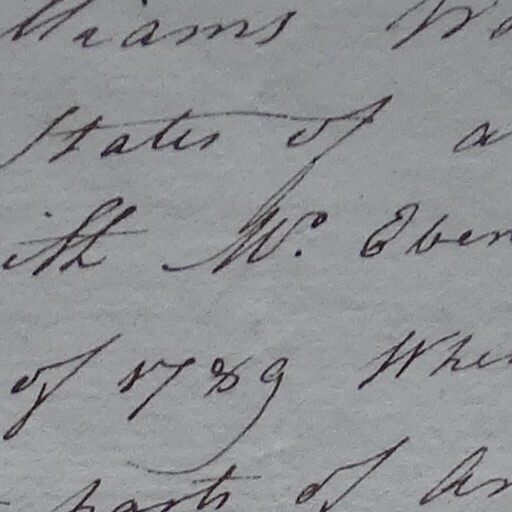 lliams
States of a
ith Mr. Eben
of 1789 Whe
parts of Am